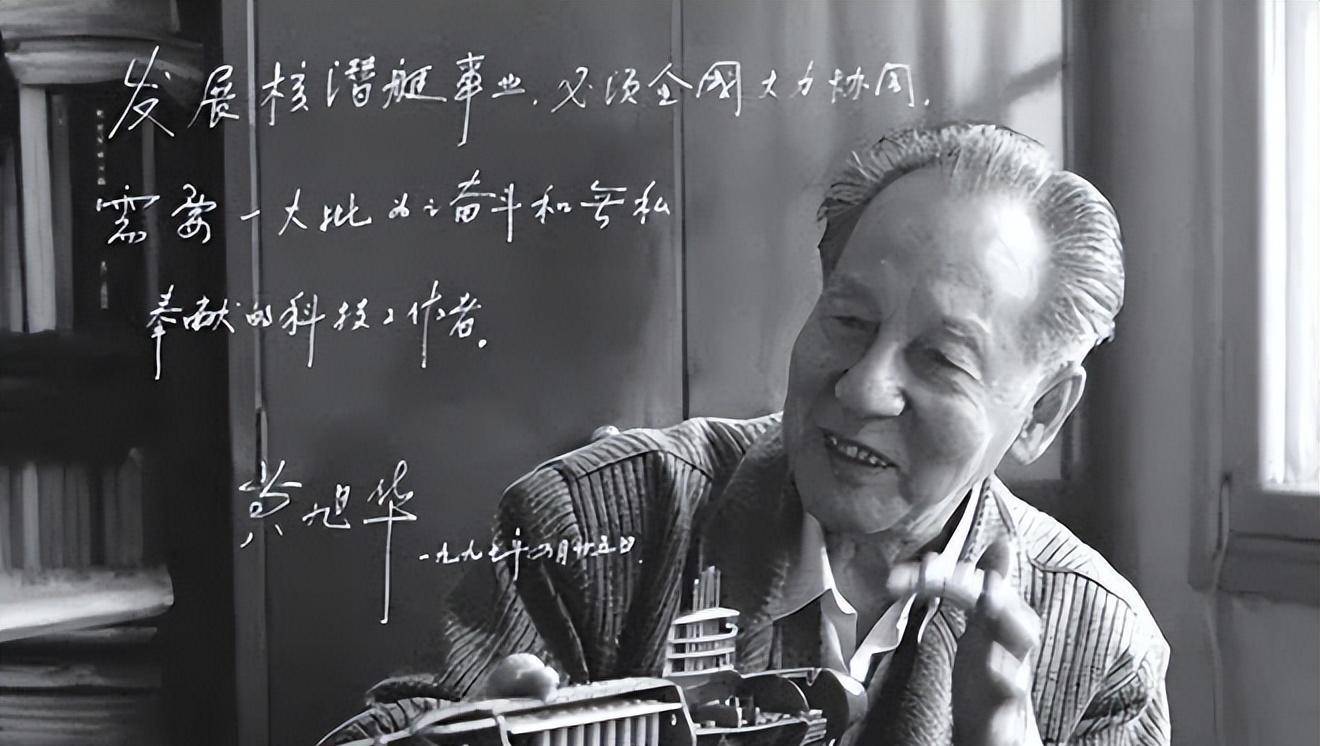 发展核潜艇事业,必须全國大力协同,
需要一大批为之奋斗和无私
奉献的科技工作者。
黄旭华
一九九七年四月廿五日.